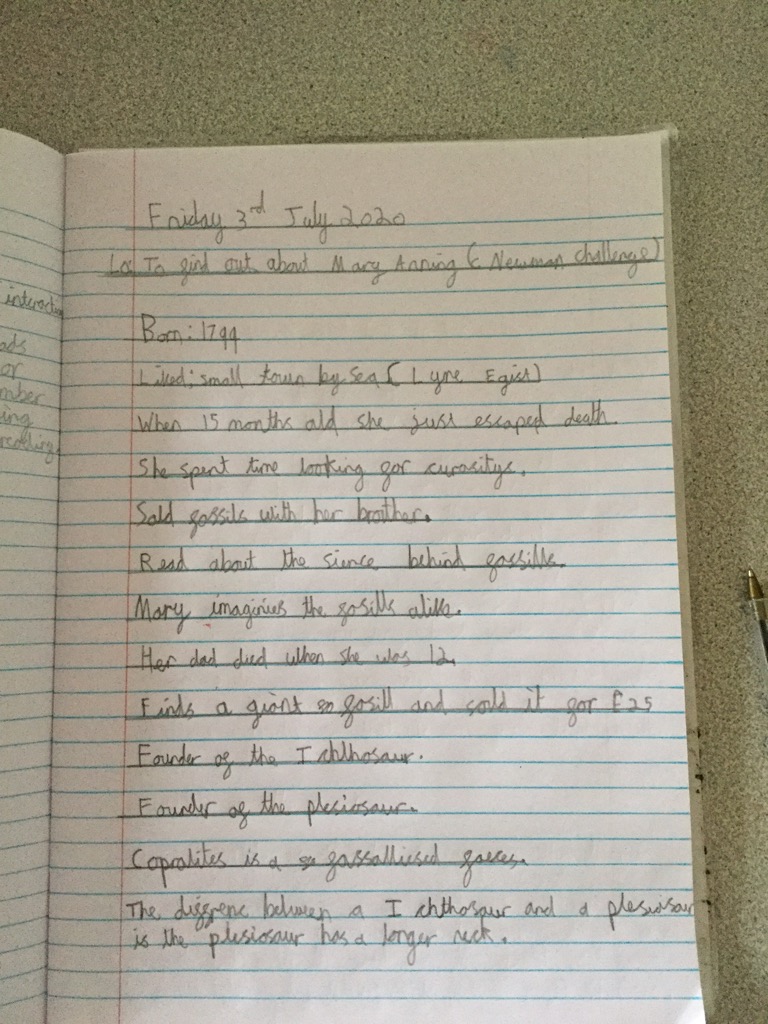 interactio
ads
or
mber
ing
reading
Friday 3rd July 2020
Lo: To find out about Mary Anning (Newman challenge)
Born: 1799
Liked: small town by sea (Lyme Egist)
When 15 months old she just escaped death.
She spent time looking for curositys.
Sold fossils with her brother.
Read about the sience behind fossills.
Mary imaginies the fosills alive.
Her dad died when she was 12.
Finds a giant fosill and sold it for £25
Founder of the Ichthosaur.
Founder of the plesiosaur.
Coprolites is a fassalliesed faeces.
The diffrenc between a Ichthosaur and a plesiosaur
is the plesiosaur has a longer neck.